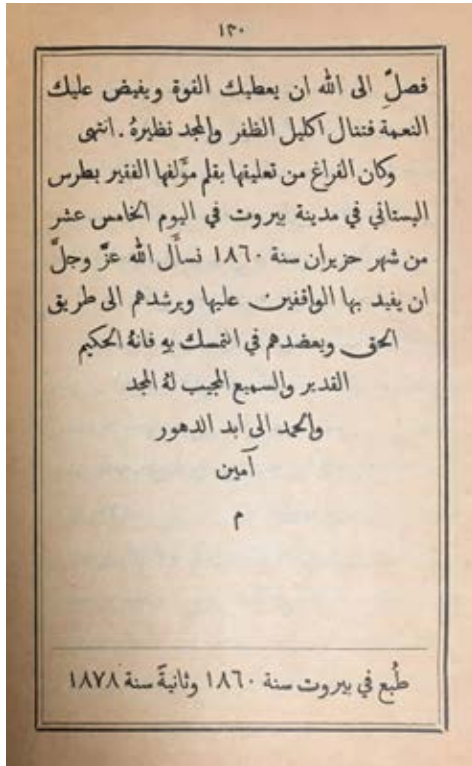 ١٣٠
فصلِّ الى الله ان يعطيك القوة ويفيض عليك
النعمة فتنال اكليل الظفر والمجد نظيرهُ . انتهى
وكان الفراغ من تعليقها بقلم مؤَلفها الفقير بطرس
البستاني في مدينة بيروت في اليوم الخامس عشر
من شهر حزيران سنة ١٨٦٠ نسأَل الله عزَّ وجلَّ
ان يفيد بها الواقفين عليها ويرشدهم الى طريق
الحق ويعضدهم في التمسك بهِ فانهُ الحكيم
القدير والسميع المجيب لهُ المجد
والحمد الى ابد الدهور
آمين
م
طُبع في بيروت سنة ١٨٦٠ وثانيةً سنة ١٨٧٨